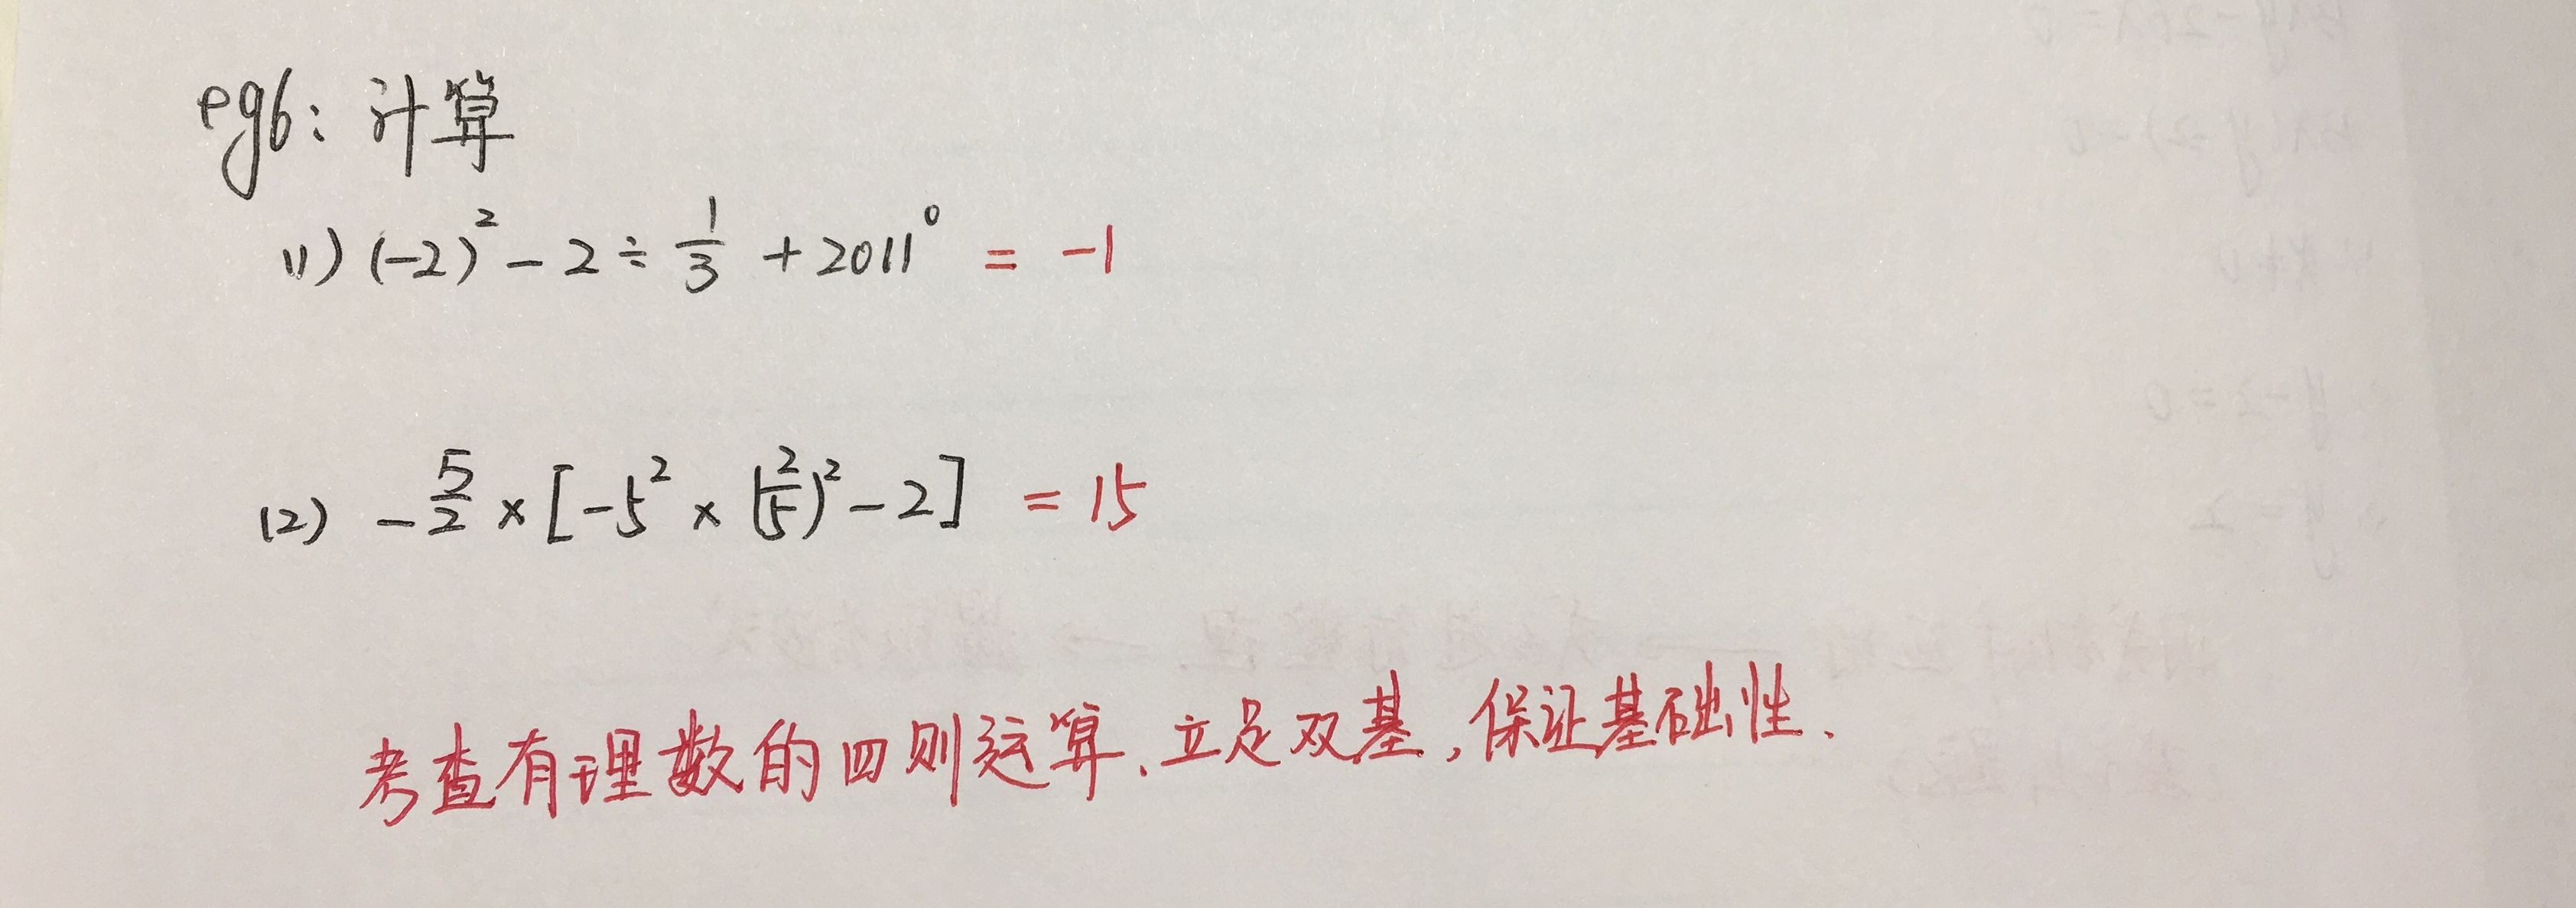 eg6: 计算
(1) (-2)² - 2 ÷ 1/3 + 2011⁰ = -1
(2) -5/2 × [-5² × (2/5)² - 2] = 15
考查有理数的四则运算、立足双基,保证基础性.